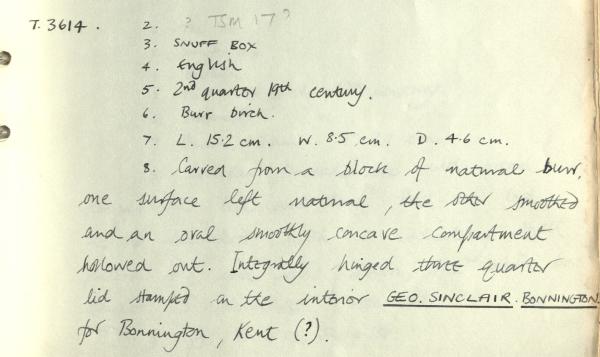 T. 3614. 2. ? TSM 17?
3. SNUFF BOX
4. English
5. 2nd quarter 19th century.
6. Burr birch.
7. L. 15.2 cm. W. 8.5 cm. D. 4.6 cm.
8. Carved from a block of natural burr,
one surface left natural, the other smoothed
and an oval smoothly concave compartment
hollowed out. Integrally hinged quarter
lid stamped on the interior GEO. SINCLAIR. BONNINGTON
for Bonnington, Kent (?).